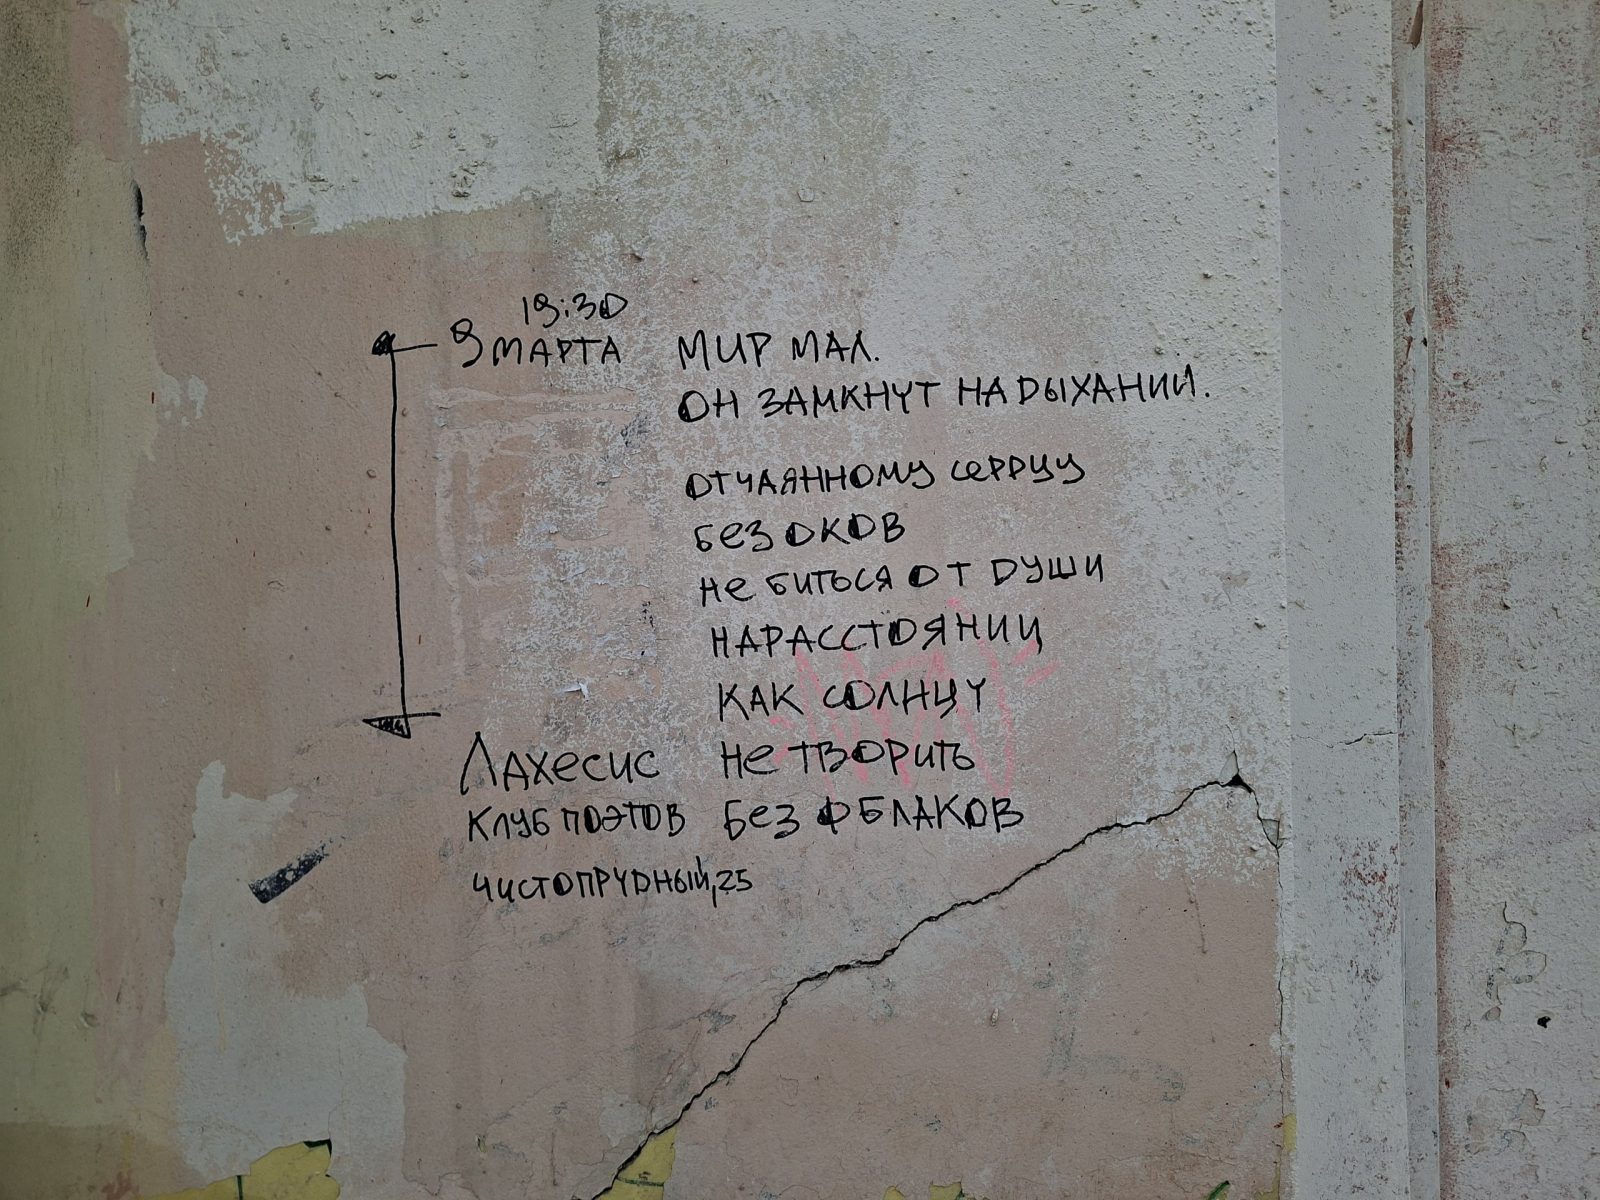 19:30
9 МАРТА
МИР МАЛ.
ОН ЗАМКНУТ НА ДЫХАНИИ.
ОТЧАЯННОМУ СЕРДЦУ
БЕЗ ОКОВ
НЕ БИТЬСЯ ОТ ДУШИ
НА РАССТОЯНИИ
КАК СОЛНЦУ
НЕ ТВОРИТЬ
БЕЗ ОБЛАКОВ
ЛАХЕСИС
КЛУБ ПОЭТОВ
ЧИСТОПРУДНЫЙ, 25